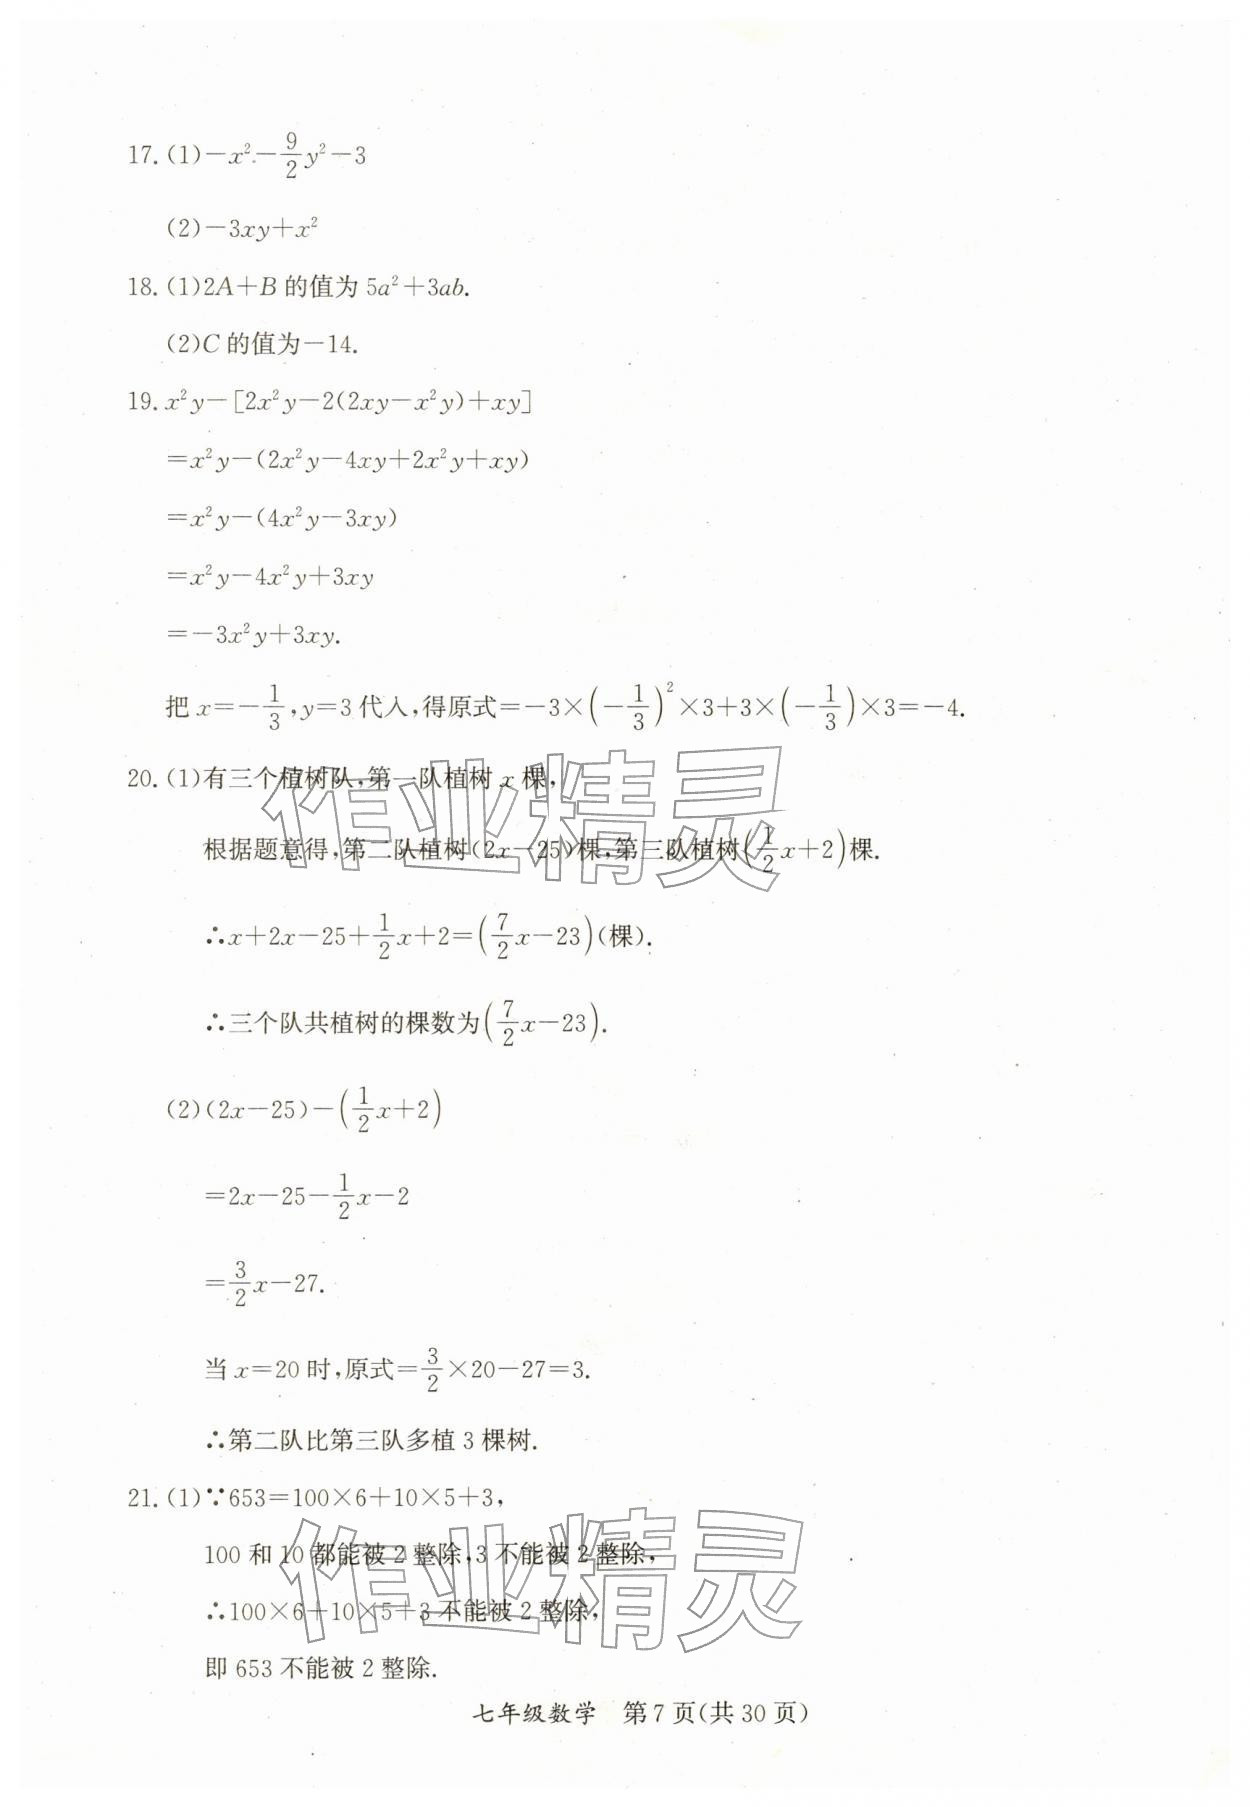 17.(1)−x²−9/2y²−3
(2)−3xy+x²
18.(1)2A+B的值为5a²+3ab.
(2)C的值为−14.
19.x²y−[2x²y−2(2xy−x²y)+xy]
=x²y−(2x²y−4xy+2x²y+xy)
=x²y−(4x²y−3xy)
=x²y−4x²y+3xy
=−3x²y+3xy.
把x=−1/3,y=3代入,得原式=−3×(−1/3)²×3+3×(−1/3)×3=−4.
20.(1)有三个植树队,第一队植树x棵,
作业精灵
根据题意得,第二队植树(2x−25)棵,第三队植树(1/2x+2)棵.
∴x+2x−25+1/2x+2=(7/2x−23)(棵).
∴三个队共植树的棵数为(7/2x−23).
(2)(2x−25)−(1/2x+2)
=2x−25−1/2x−2
=3/2x−27.
当x=20时,原式=3/2×20−27=3.
∴第二队比第三队多植3棵树.
21.(1)∵653=100×6+10×5+3,
100和10都能被2整除,3不能被2整除,
作业精灵
∴100×6+10×5+3不能被2整除,
即653不能被2整除.
七年级数学 第7页(共30页)